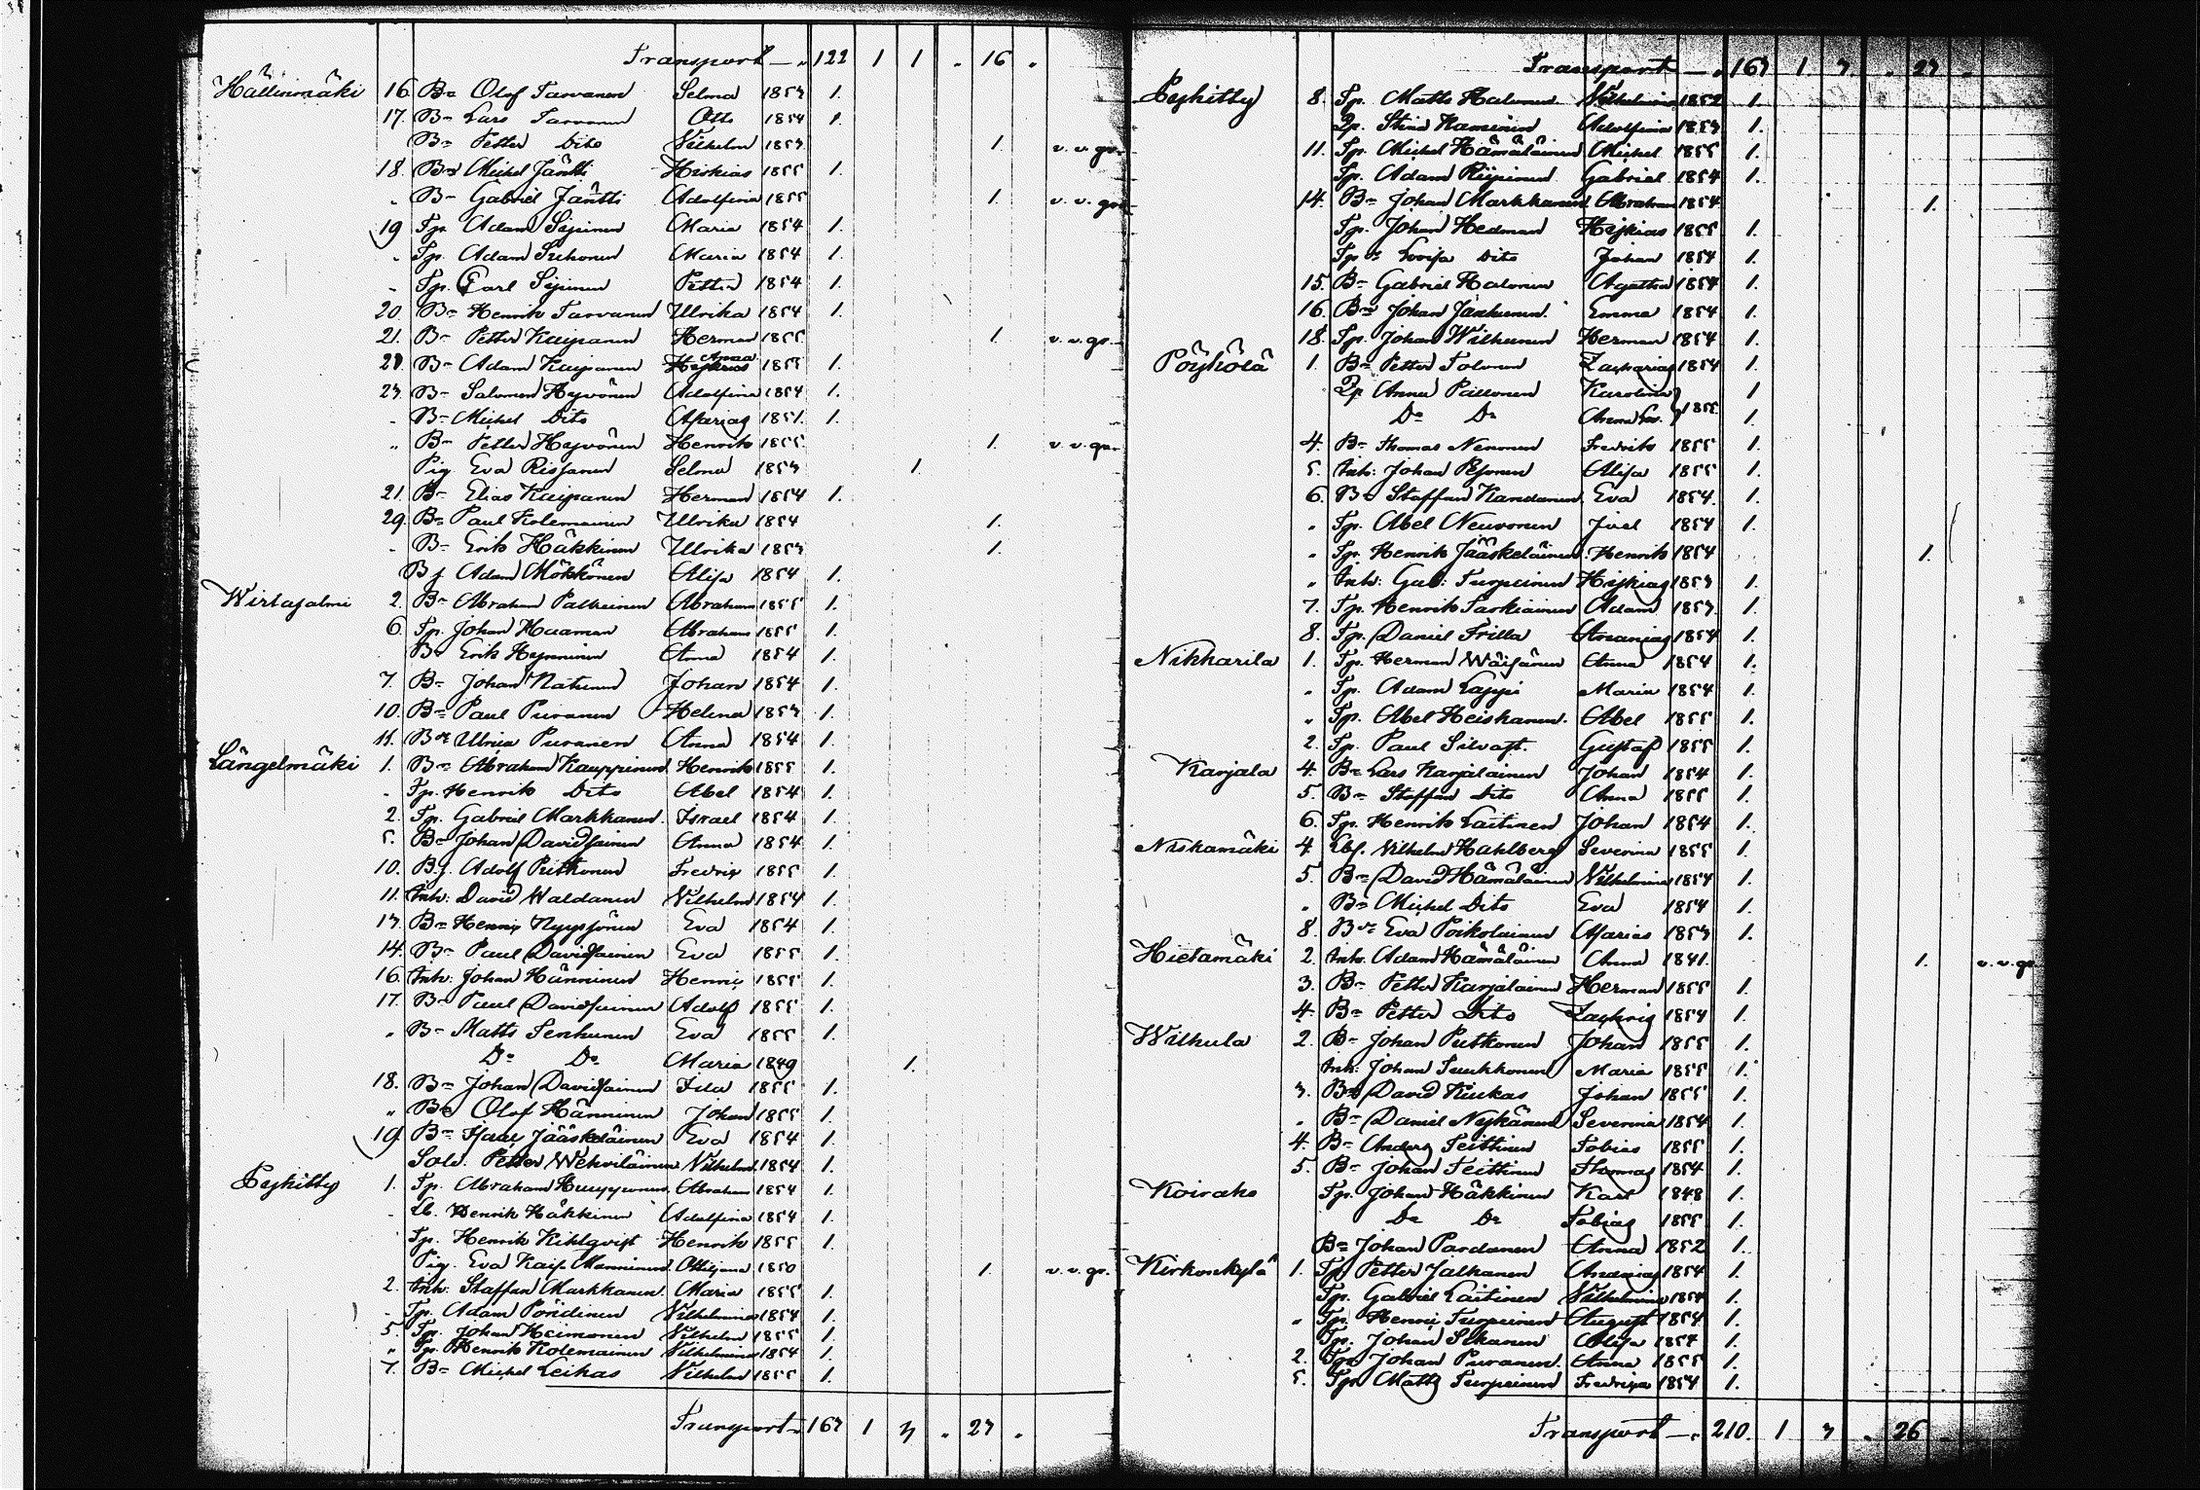 Transport — „ 122 1 1 „ 16 „
Hällinmäki 16 Bn Olof Tarvanen Selma 1853 1.
17. Bn Lars Tarvanen Otto 1854 1.
Bn Petter Dito Vilhelm 1853 1. v. v. gr.
18. Bn Michel Jäntti Hiskias 1855 1.
„ Bn Gabriel Jäntti Adolfina 1855 1. v. v. gr.
19 Tp. Adam Sepinen Maria 1854 1.
„ Tp. Adam Suhonen Maria 1854 1.
„ Tp. Carl Sepinen Petter 1854 1.
20 Bn Henrik Tarvanen Ulrika 1854 1.
21. Bn Petter Kaipanen Herman 1855 1. v. v. gr.
Bn Adam Kaipanen Anna 1855 1.
23. Bn Salomon Hyvönen Adolfina 1854 1.
„ Bn Michel Dito Asarias 1851. 1.
„ Bn Petter Hyvönen Henrik 1855 1. v. v. gr.
Pig. Eva Rissanen Selma 1853 1.
21. Bn Elias Kaipanen Herman 1854 1.
29. Bn Paul Kolemainen Ulrika 1854 1.
„ Bn Erik Häkkinen Ulrika 1853 1.
Bj Adam Mökkönen Alisa 1854 1.
Wirtasalmi 2. Bn Abraham Paukeinen Abraham 1855 1.
6. Tp. Johan Haaman Abraham 1855 1.
Bn Erik Hynninen Anna 1854 1.
7. Bn Johan Natunen Johan 1854 1.
10. Bn Paul Puranen Helena 1853 1.
11. Bde Ulrica Puranen Anna 1854 1.
Längelmäki 1. Bn Abraham Kauppinen Henrik 1855 1.
„ Tp. Henrik Dito Abel 1854 1.
2. Tp. Gabriel Markkanen Israel 1854 1.
5. Bn Johan Davidsainen Anna 1854 1.
10. Bj. Adolf Pitkonen Fredrik 1855 1.
11. Inh: David Waldanen Vilhelm 1854 1.
13. Bn Henrix Nyyssönen Eva 1854 1.
14. Bn Paul Davidsainen Eva 1855 1.
16. Inh. Johan Hänninen Henric 1855 1.
17. Bn Paul Davidsainen Adolf 1855 1.
„ Bn Matts Senhunen Eva 1855 1.
Do Do Maria 1849 1.
18. Bn Johan Davidsainen Fila 1855 1.
„ Bn Olof Hänninen Johan 1855 1.
19 Bn Isaac Jääskeläinen Eva 1854 1.
Sold. Petter Wehviläinen Vilhelm 1854 1.
1. Tp. Abraham Huupponen Abraham 1854 1.
„ Lb. Henrik Häkkinen Adolfina 1854 1.
Tp. Henrik Kihlqvist Henrik 1855 1.
Pig. Eva Kaip Manninen 1850 1. v. v. gr.
2. Inh. Staffan Markkanen Maria 1855 1.
„ Tp. Adam Pöndinen Vilhelmina 1854 1.
5. Tp. Johan Heimonen Vilhelm 1855 1.
„ Tp. Henrik Kolemainen Vilhelmina 1854 1.
7. Bn Michel Leikas Vilhelm 1855 1.
Transport — 163 1 3 „ 23 „
Transport — „ 163 1. 3. „ 23 „
8. Tp. Matts Halonen Vilhelmina 1852 1.
Pp. Stina Kaminen Adolfina 1853 1.
11. Tp. Michel Hämäläinen Michel 1855 1.
Tp. Adam Riipinen Gabriel 1854 1.
14. Bn Johan Markkanen Abraham 1854 1.
Tp. Johan Hedman Hiskias 1855 1.
Tp. Lovisa Dito Johan 1854 1.
15. Bn Gabriel Halonen Agatha 1854 1.
16. Bn Johan Janhunen Emma 1854 1.
18. Tp. Johan Wilhunen Herman 1854 1.
Pöyhölä 1. Bn Petter Tolonen Zacharias 1854 1.
Pp Anna Paasonen Karolina 1
Do Do Anna Lov. 1855 1.
4. Bn Thomas Nenonen Fredrik 1855 1.
5. Inh: Johan Pesonen Alisa 1855 1.
6. Bn Staffan Kandanen Eva 1854 1.
„ Tp. Abel Neuvonen Joel 1854 1.
„ Tp. Henrik Jääskeläinen Henrik 1854 1.
„ Inh: Gab: Turpeinen Hiskias 1853 1.
7. Tp. Henrik Tarkiainen Adam 1853 1.
8. Tp. Daniel Trilla Ananias 1854 1.
Nikkarila 1. Tp. Herman Wäisänen Anna 1854 1.
„ Tp. Adam Lappi Maria 1854 1.
„ Tp. Abel Heiskanen Abel 1855 1.
2. Tp. Paul Silvast. Gustaf 1855 1.
Karjala 4. Bn Lars Karjalainen Johan 1854 1.
5. Bn Staffan Dito Anna 1855 1.
6. Tp. Henrik Laitinen Johan 1854 1.
Niskamäki 4. Lbf. Vilhelm Hahlberg Severina 1855 1.
5. Bn David Hämäläinen Vilhelmina 1854 1.
„ Bn Michel Dito Eva 1854 1.
8. Bde Eva Poikolainen Asarias 1853 1.
Hietamäki 2. Inh. Adam Hämäläinen Anna 1841. 1. v. v. gr.
3. Bn Petter Karjalainen Herman 1855 1.
4. Bn Petter Dito Zachris 1854 1.
Wilhula 2. Bn Johan Putkonen Johan 1855 1.
Inh. Johan Tuukkonen Maria 1855 1.
3. Bn David Kiukas Johan 1855 1.
„ Bn Daniel Nykänen Severina 1854 1.
4. Bn Anders Teittinen Tobias 1855 1.
5. Bn Johan Teittinen Thomas 1854 1.
Koirako Tp. Johan Häkkinen Karl 1848 1.
Do Do Tobias 1855 1.
Bn Johan Pardanen Anna 1852 1.
Kirkonkylä 1. Tp. Petter Jalkanen Ananias 1854 1.
Tp. Gabriel Laitinen Vilhelmina 1854 1.
„ Tp. Henric Turpeinen August 1854 1.
Tp. Johan Sikanen Alisa 1854 1.
2. Tp. Johan Puranen Anna 1855 1.
5. Tp. Matts Turpeinen Fredrika 1854 1.
Transport — „ 210. 1 3 „ 26 „